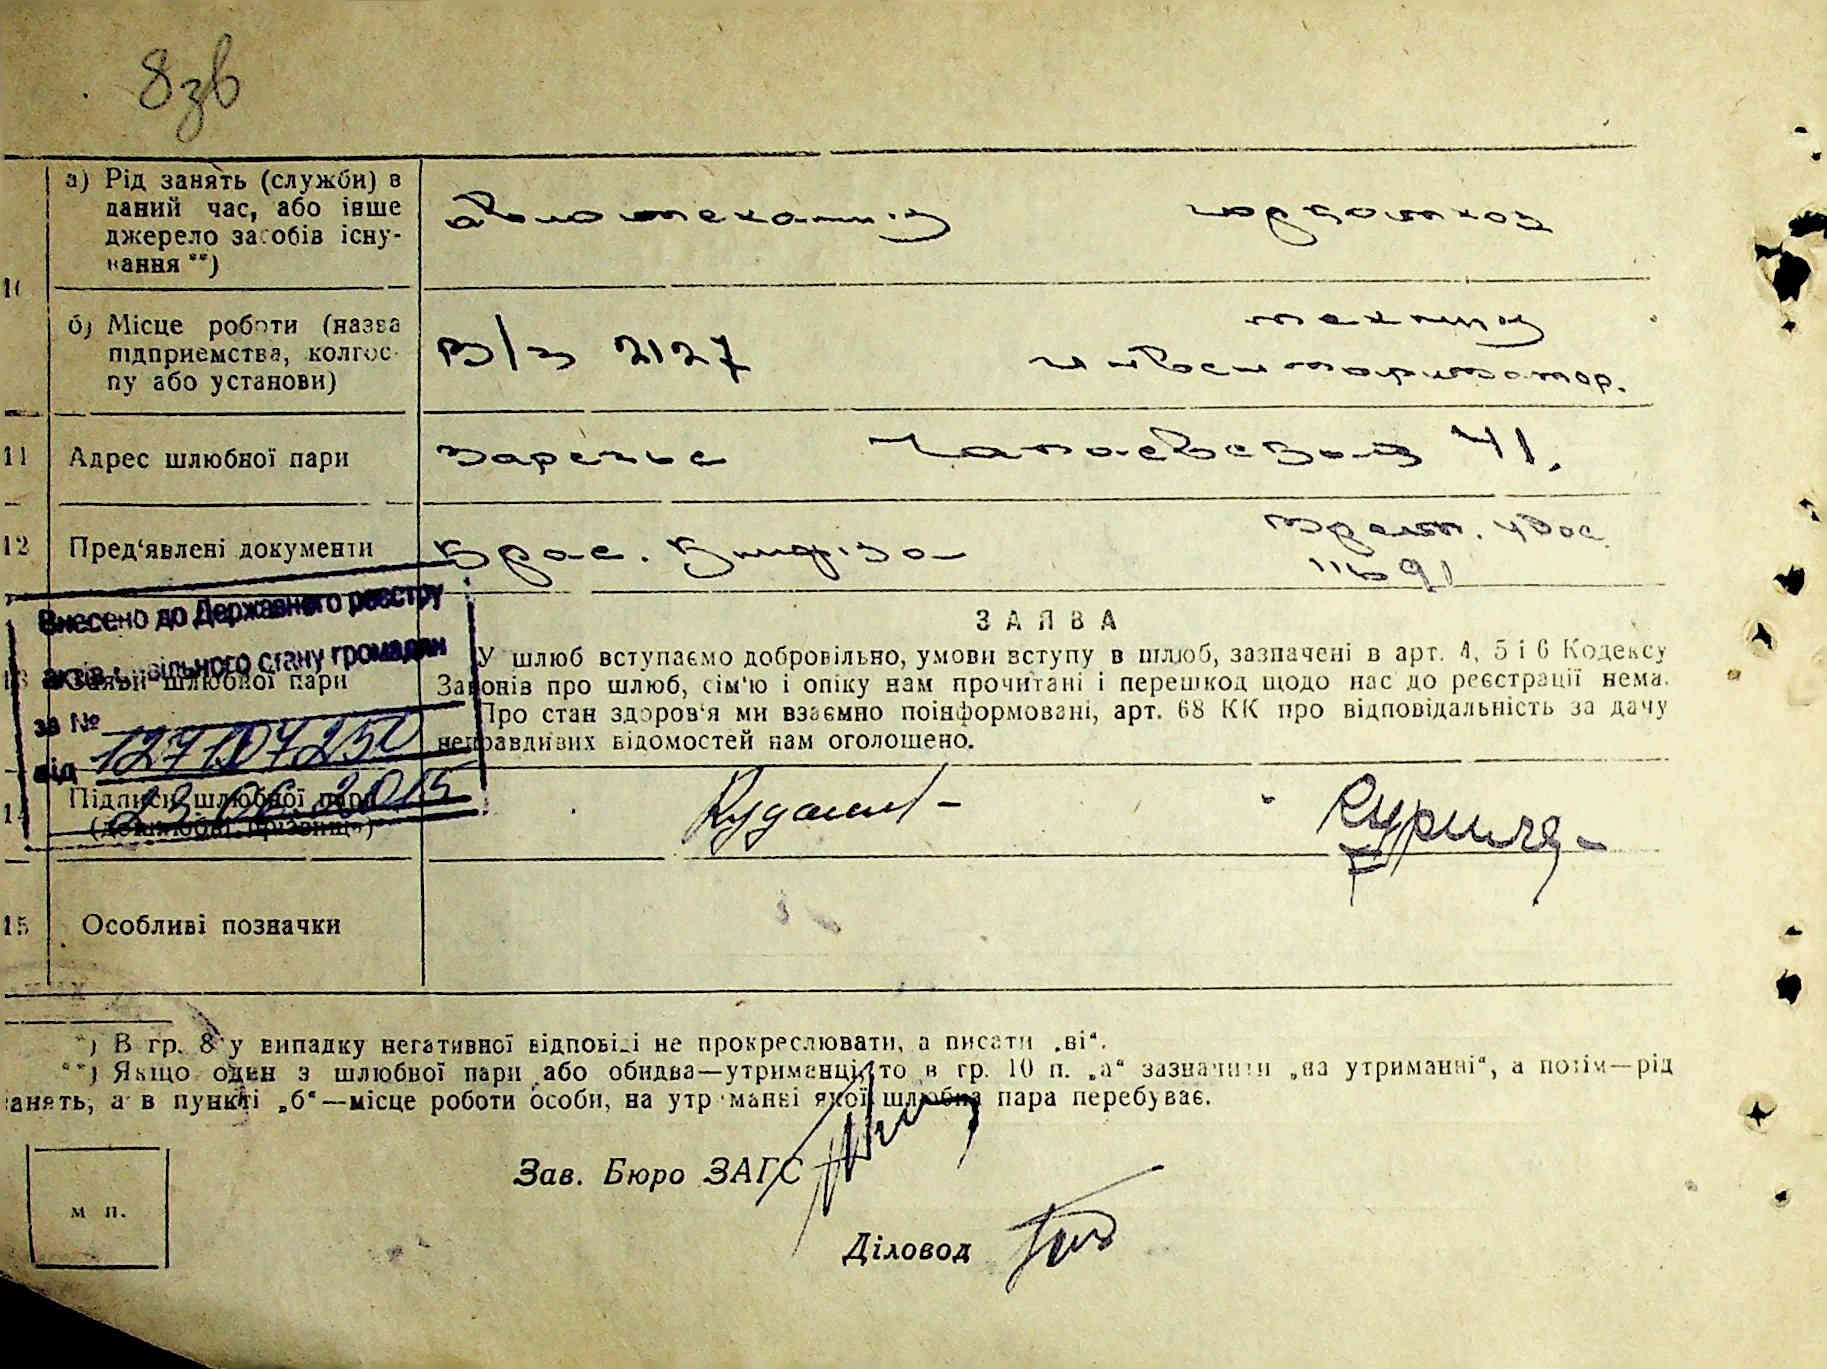 8зв
а) Рід занять (служби) в
даний час, або інше
джерело засобів існу-
вання **)
авиомеханик
10
б) Місце роботи (назва
підприємства, колгос-
пу або установи)
в/з 2127
техникум
11 Адрес шлюбної пари
Заречье Чапаевская 41.
12 Пред'явлені документи
Крас. Книжка
№ 91
Внесено до Державного реєстру
актів цивільного стану громадян
за № 127107250
від 23.06.2015
13 Заяви шлюбної пари
З А Я В А
У шлюб вступаємо добровільно, умови вступу в шлюб, зазначені в арт. 4, 5 і 6 Кодексу
Законів про шлюб, сім'ю і опіку нам прочитані і перешкод щодо нас до реєстрації нема.
Про стан здоров'я ми взаємно поінформовані, арт. 68 КК про відповідальність за дачу
неправдивих відомостей нам оголошено.
14 Підписи шлюбної пари
(дошлюбні прізвища)
15 Особливі позначки
*) В гр. 8 у випадку негативної відповіді не прокреслювати, а писати „ні“.
**) Якщо оден з шлюбної пари або обидва—утриманці, то в гр. 10 п. „а“ зазначити „на утриманні“, а потім—рід
занять, а в пункті „б“—місце роботи особи, на утриманні якої шлюбна пара перебуває.
Зав. Бюро ЗАГС
м п.
Діловод